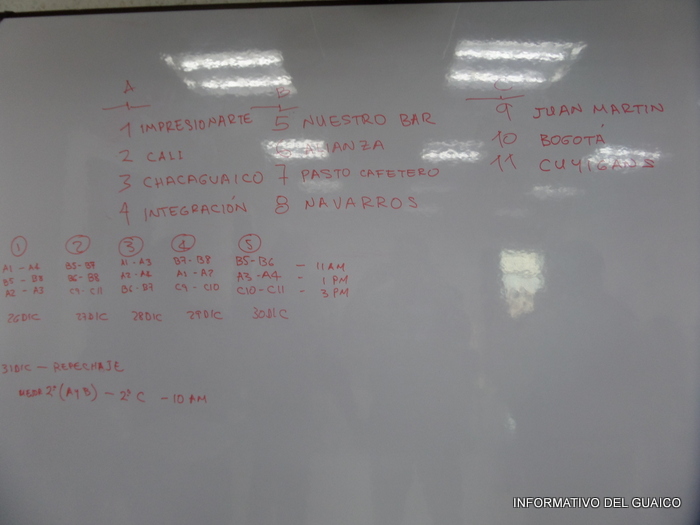 A
1 IMPRESIONARTE
2 CALI
3 CHACAGUAICO
4 INTEGRACIÓN
B
5 NUESTRO BAR
6 ALIANZA
7 PASTO CAFETERO
8 NAVARROS
C
9 JUAN MARTIN
10 BOGOTÁ
11 CUYIGANS
1 2 3 4 5
A1-A4 B5-B7 A1-A3 B7-B8 B5-B6 - 11 AM
B5-B8 B6-B8 A2-A4 A1-A2 A3-A4 - 1 PM
A2-A3 C9-C11 B6-B7 C9-C10 C10-C11 - 3 PM
26DIC 27DIC 28DIC 29DIC 30DIC
31DIC - REPECHAJE
2º (A y B) - 2º C - 10 AM
INFORMATIVO DEL GUAICO